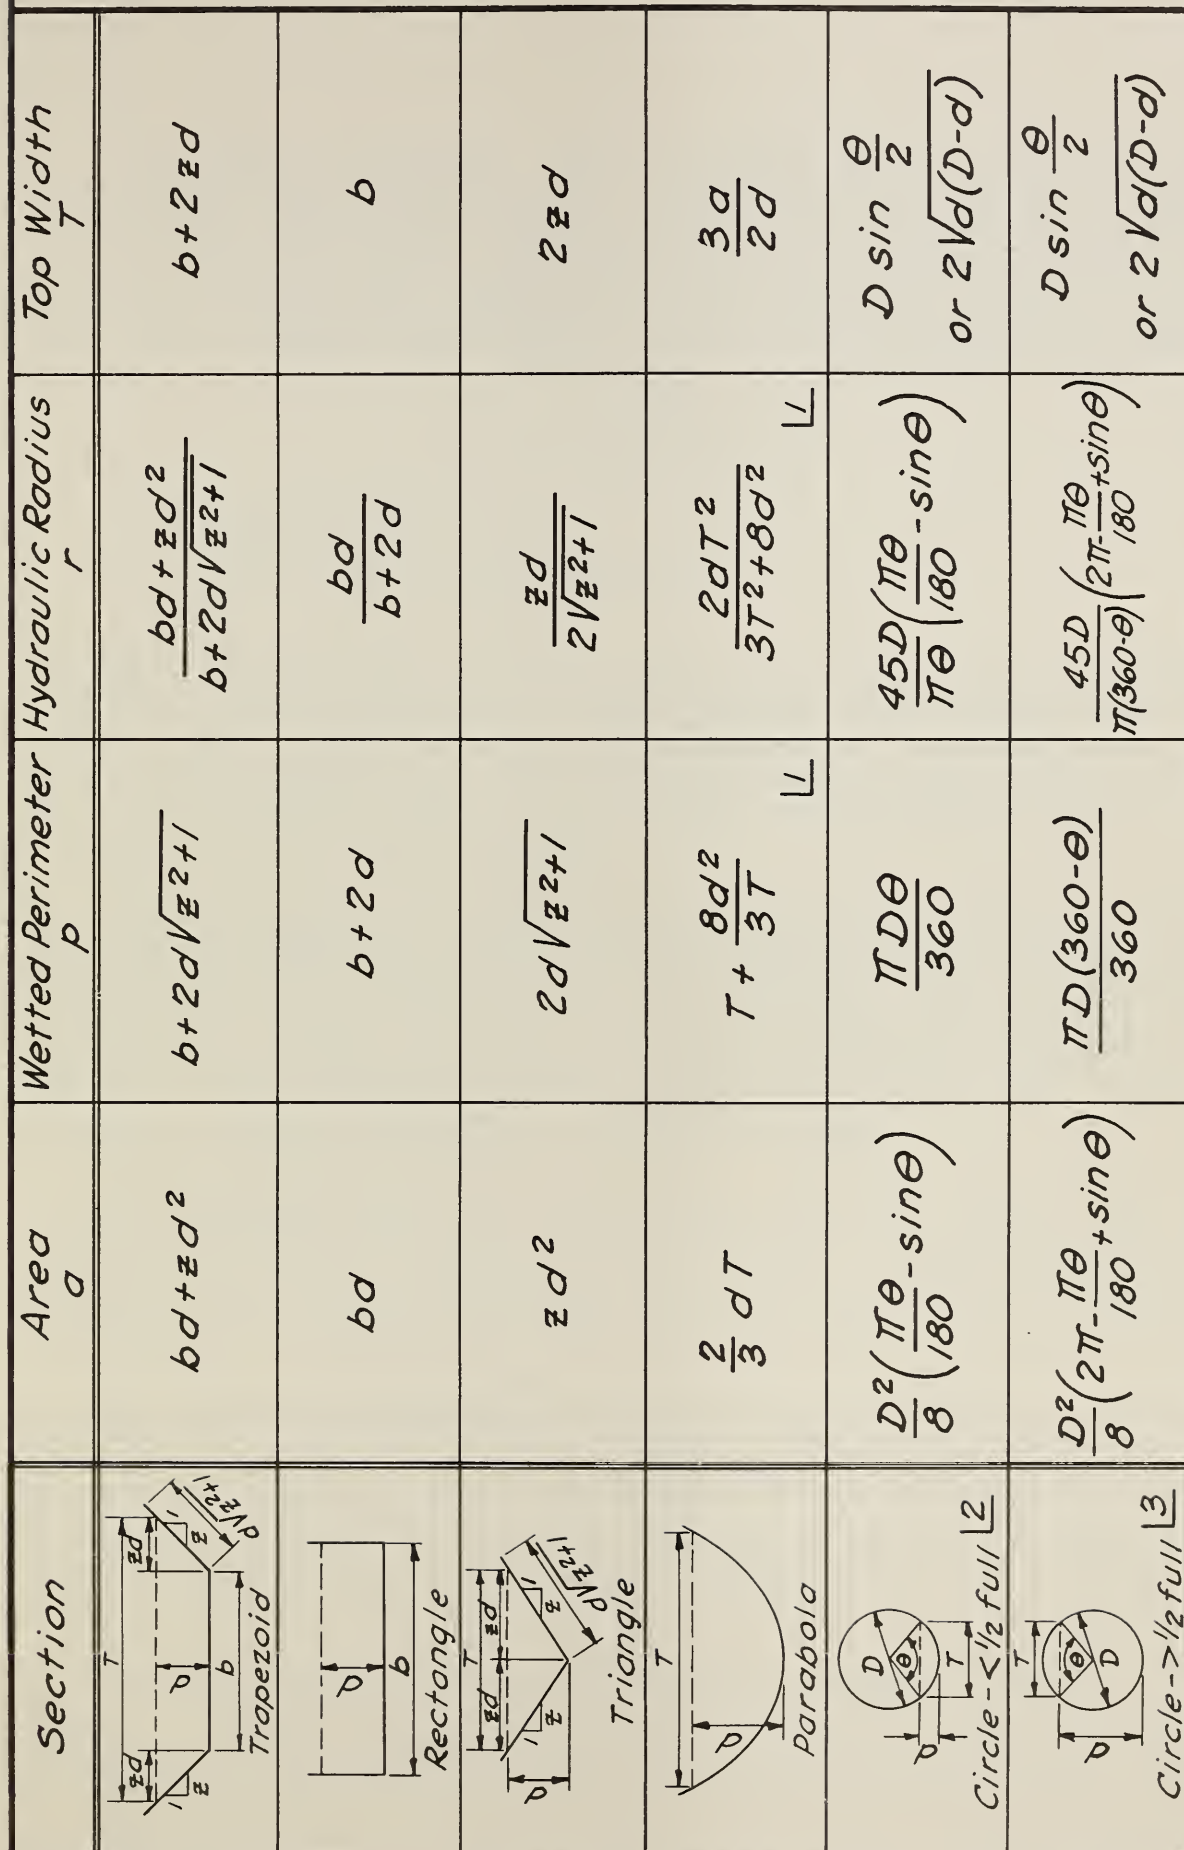 Section
Area
a
Wetted Perimeter
p
Hydraulic Radius
r
Top Width
T
T
zd
zd
1
z
1
z
d
b
d√z²+1
Trapezoid
bd+zd²
b+2d√z²+1
bd+zd² / b+2d√z²+1
b+2zd
d
b
Rectangle
bd
b+2d
bd / b+2d
b
T
zd
zd
1
z
1
z
d
d√z²+1
Triangle
zd²
2d√z²+1
zd / 2√z²+1
2zd
T
d
Parabola
2/3 dT
T + 8d²/3T ⌊1
2dT² / 3T²+8d² ⌊1
3a / 2d
D
θ
T
d
Circle-<1/2 full ⌊2
D²/8 (πθ/180 - sinθ)
πDθ / 360
45D/πθ (πθ/180 - sinθ)
D sin θ/2
or 2√d(D-d)
T
θ
D
d
Circle->1/2 full ⌊3
D²/8 (2π - πθ/180 + sinθ)
πD(360-θ) / 360
45D/π(360-θ) (2π - πθ/180 + sinθ)
D sin θ/2
or 2√d(D-d)